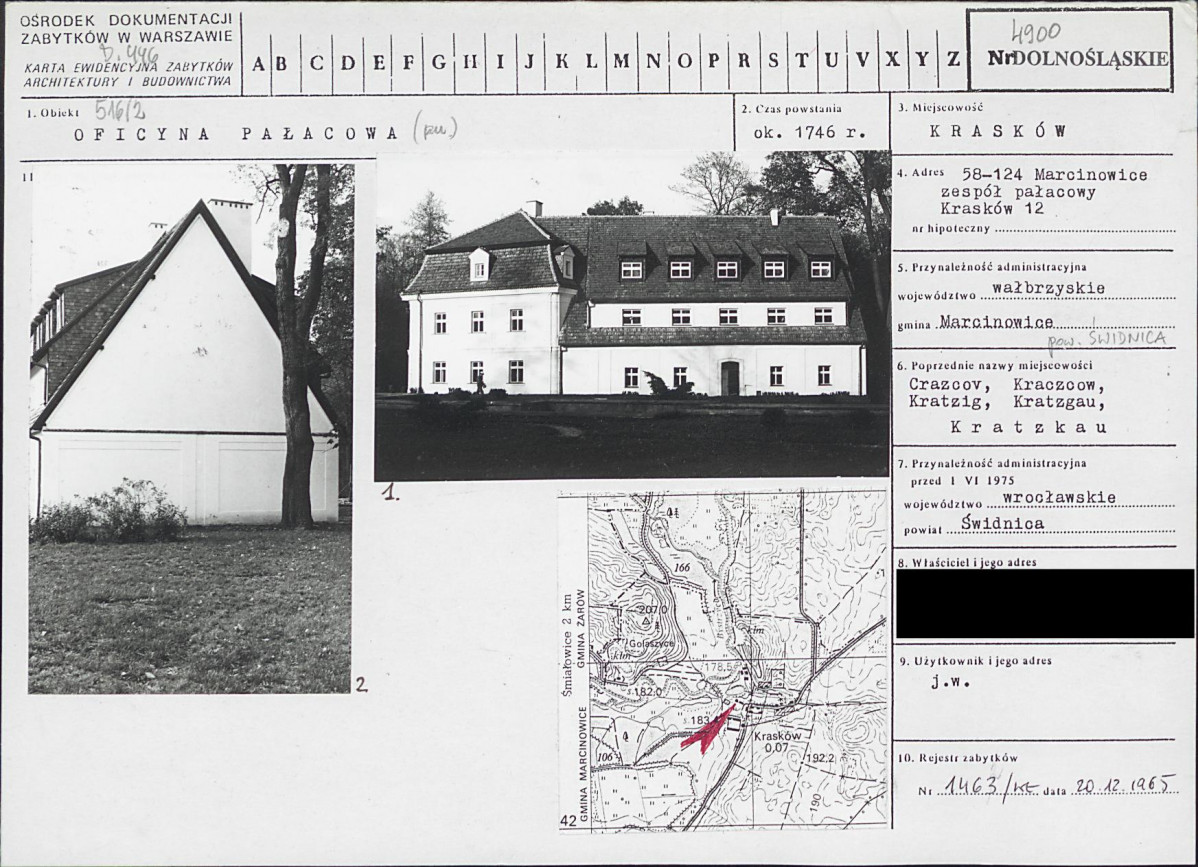 OŚRODEK DOKUMENTACJI
ZABYTKÓW W WARSZAWIE
KARTA EWIDENCYJNA ZABYTKÓW
ARCHITEKTURY I BUDOWNICTWA
A B C D E F G H I J K L M N O P R S T U V X Y Z
4900
Nr DOLNOŚLĄSKIE
1. Obiekt 516/2
OFICYNA PAŁACOWA
2. Czas powstania
ok. 1746 r.
3. Miejscowość
KRASKÓW
4. Adres 58-124 Marcinowice
zespół pałacowy
Krasków 12
nr hipoteczny
5. Przynależność administracyjna
województwo wałbrzyskie
gmina Marcinowice
pow. ŚWIDNICA
6. Poprzednie nazwy miejscowości
Crazcov, Kraczcow,
Kratzig, Kratzgau,
Kratzkau
7. Przynależność administracyjna
przed 1 VI 1975
województwo wrocławskie
powiat Świdnica
8. Właściciel i jego adres
9. Użytkownik i jego adres
j.w.
10. Rejestr zabytków
Nr 1463/ data 20.12.1965
11
1.
2
Śmiałowice 2 km
GMINA ŻARÓW
GMINA MARCINOWICE
166
207,0
Gołaszyce
klm
klm
178.5
s.182.0
Krasków
0,07
192.2
190
106
42